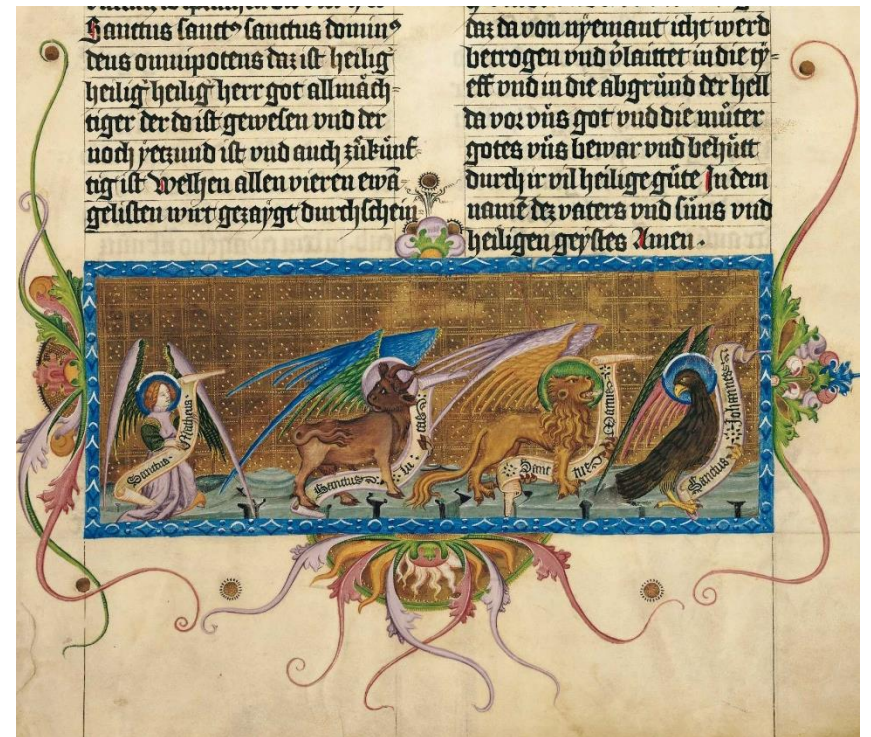 Sanctus sanctꝰ sanctus dominꝰ
deus omnipotens daz ist heilig
heilig heilig herr got allmäch-
tiger der do ist gewesen vnd der
noch yeczund ist vnd auch zůkünf-
tig ist Welhen allen vieren ewā-
gelisten wirt gezaÿgt durchschein
daz da von nÿemant icht werd
betrogen vnd v̄laittet in die tÿ-
eff vnd in die abgründ der hell
da vor vns got vnd die můter
gotes vns bewar vnd behütt
durch ir vil heilige güte In dem
namē dez vaters vnd suns vnd
heiligen geÿstes Amen.
Sanctus Matheus
Sanctus lu cas
Sanc tus Marcus
Sanctus Johannes